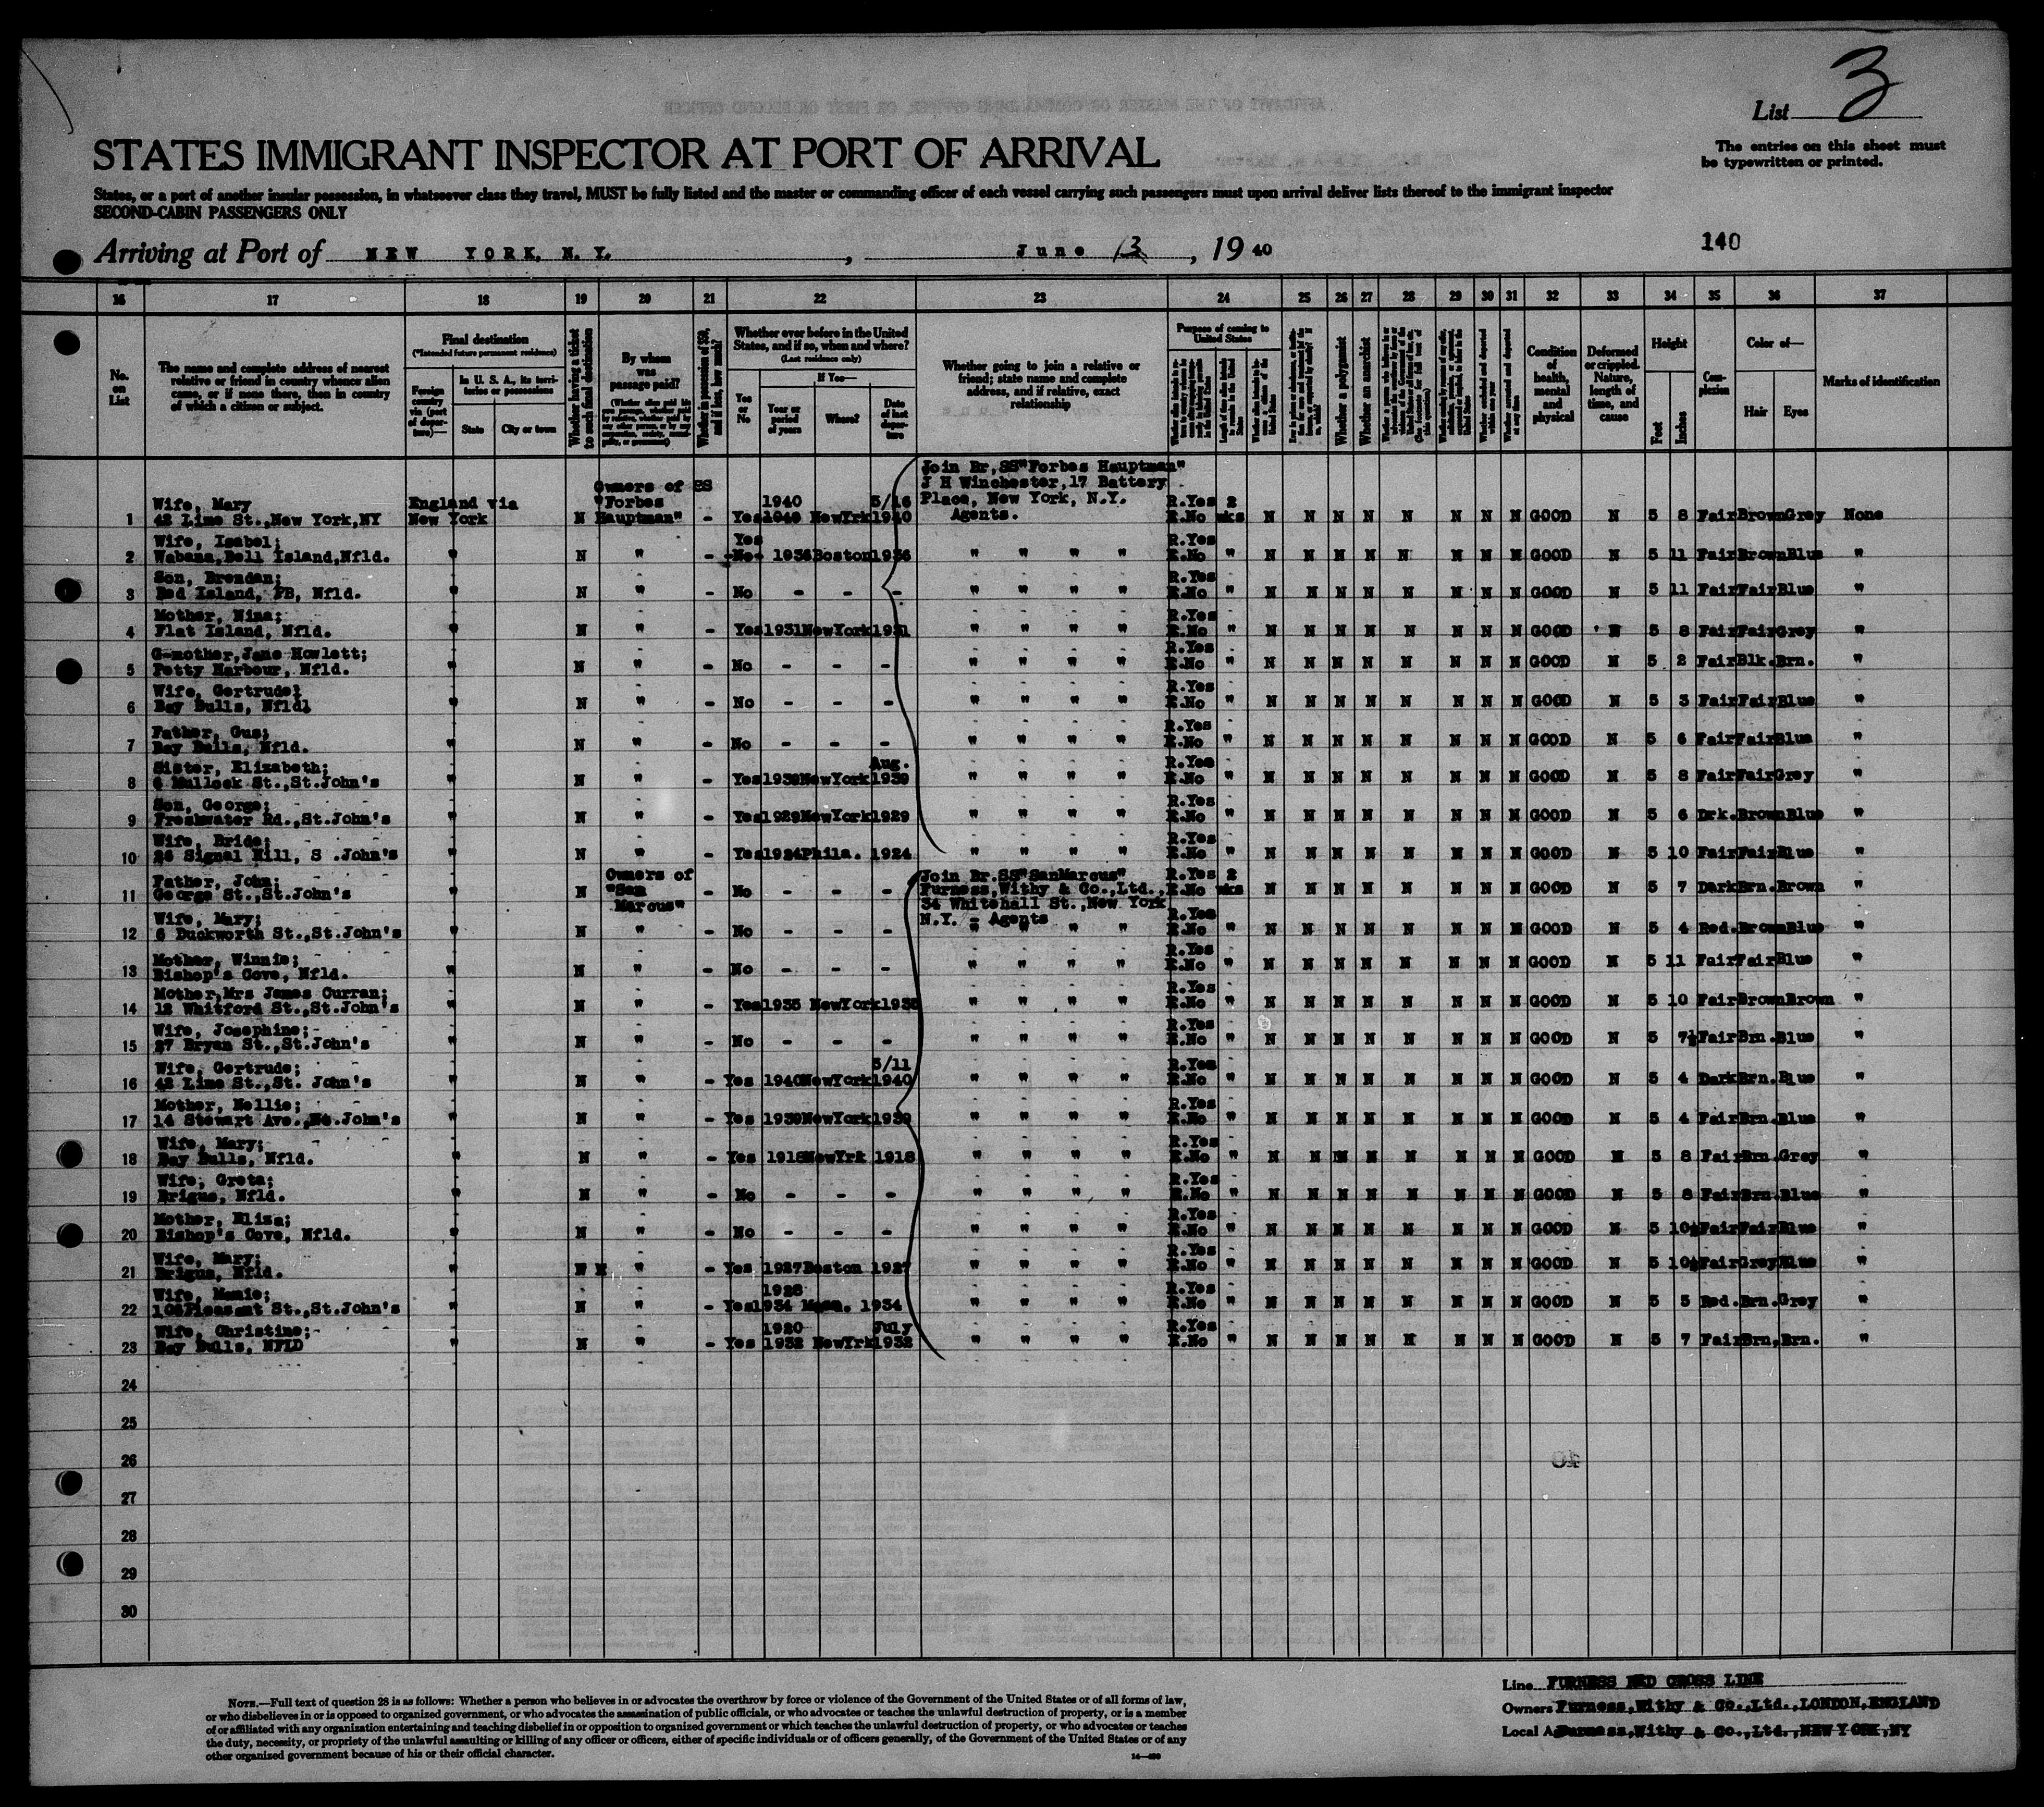 List 3
STATES IMMIGRANT INSPECTOR AT PORT OF ARRIVAL
The entries on this sheet must
be typewritten or printed.
States, or a part of another insular possession, in whatsoever class they travel, MUST be fully listed and the master or commanding officer of each vessel carrying such passengers must upon arrival deliver lists thereof to the immigrant inspector
SECOND-CABIN PASSENGERS ONLY
Arriving at Port of NEW YORK, N. Y., June 13, 19 40
140
16 17 18 19 20 21 22 23 24 25 26 27 28 29 30 31 32 33 34 35 36 37
No. on List
The name and complete address of nearest relative or friend in country whence alien came, or if none there, then in country of which a citizen or subject.
Final destination
(*Intended future permanent residence)
Foreign country via (port of departure)—
In U. S. A., its territories or possessions
State
City or town
Whether having a ticket to such final destination
By whom was passage paid?
Whether in possession of $50, and if less, how much?
Whether ever before in the United States, and if so, when and where?
(Last residence only)
Yes or No
If Yes—
Year or period of years
Where?
Date of last departure
Whether going to join a relative or friend; state name and complete address, and if relative, exact relationship
Purpose of coming to United States
Whether a polygamist
Whether an anarchist
Condition of health, mental and physical
Deformed or crippled. Nature, length of time, and cause
Height
Feet
Inches
Complexion
Color of—
Hair
Eyes
Marks of identification
1 Wife, Mary 42 Lime St.,New York,NY England via New York N Owners of SS "Forbes Hauptman" - Yes 1940 1940 NewYrk 5/16 1940 Join Br,SS"Forbes Hauptman" J H Winchester,17 Battery Place, New York, N.Y. Agents. R.Yes E.No 2 wks N N N N N N N N GOOD N 5 8 Fair Brown Grey None
2 Wife, Isabel; Wabana,Bell Island,Nfld. " N " - Yes No 1936 Boston 1936 " " " " R.Yes E.No " N N N N N N N N GOOD N 5 11 Fair Brown Blue "
3 Son, Brendan; Red Island, PB, Nfld. " N " - No - - - " " " " R.Yes E.No " N N N N N N N N GOOD N 5 11 Fair Fair Blue "
4 Mother, Nina; Flat Island, Nfld. " N " - Yes 1931 NewYork 1931 " " " " R.Yes E.No " N N N N N N N N GOOD N 5 8 Fair Fair Grey "
5 G-mother,Jane Howlett; Petty Harbour, Nfld. " N " - No - - - " " " " R.Yes E.No " N N N N N N N N GOOD N 5 2 Fair Blk. Brn. "
6 Wife, Gertrude; Bay Bulls, Nfld. " N " - No - - - " " " " R.Yes E.No " N N N N N N N N GOOD N 5 3 Fair Fair Blue "
7 Father, Gus; Bay Bulls, Nfld. " N " - No - - - " " " " R.Yes E.No " N N N N N N N N GOOD N 5 6 Fair Fair Blue "
8 Sister, Elizabeth; 6 Mullock St.,St.John's " N " - Yes 1939 NewYork Aug. 1939 " " " " R.Yes E.No " N N N N N N N N GOOD N 5 8 Fair Fair Grey "
9 Son, George; Freshwater Rd.,St.John's " N " - Yes 1929 NewYork 1929 " " " " R.Yes E.No " N N N N N N N N GOOD N 5 6 Drk. Brown Blue "
10 Wife, Bride; 26 Signal Hill, S .John's " N " - Yes 1924 Phila. 1924 " " " " R.Yes E.No " N N N N N N N N GOOD N 5 10 Fair Fair Blue "
11 Father, John; George St.,St.John's " N Owners of "San Marcus" - No - - - Join Br.SS"SanMarcus" Furness,Withy & Co.,Ltd., 34 Whitehall St.,New York N.Y. - Agents R.Yes E.No 2 wks N N N N N N N N GOOD N 5 7 Dark Brn. Brown "
12 Wife, Mary; 6 Duckworth St.,St.John's " N " - No - - - " " " " R.Yes E.No " N N N N N N N N GOOD N 5 4 Red. Brown Blue "
13 Mother, Winnie; Bishop's Cove, Nfld. " N " - No - - - " " " " R.Yes E.No " N N N N N N N N GOOD N 5 11 Fair Fair Blue "
14 Mother,Mrs James Curran; 12 Whitford St.,St.John's " N " - Yes 1935 NewYork 1935 " " " " R.Yes E.No " N N N N N N N N GOOD N 5 10 Fair Brown Brown "
15 Wife, Josephine; 27 Bryan St.,St.John's " N " - No - - - " " " " R.Yes E.No " N N N N N N N N GOOD N 5 7½ Fair Brn. Blue "
16 Wife, Gertrude; 42 Lime St.,St. John's " N " - Yes 1940 NewYork 5/11 1940 " " " " R.Yes E.No " N N N N N N N N GOOD N 5 4 Dark Brn. Blue "
17 Mother, Nellie; 14 Stewart Ave.,St.John's " N " - Yes 1939 NewYork 1939 " " " " R.Yes E.No " N N N N N N N N GOOD N 5 4 Fair Brn. Blue "
18 Wife, Mary; Bay Bulls, Nfld. " N " - Yes 1918 NewYrk 1918 " " " " R.Yes E.No " N N N N N N N N GOOD N 5 8 Fair Brn. Grey "
19 Wife, Greta; Brigus, Nfld. " N " - No - - - " " " " R.Yes E.No " N N N N N N N N GOOD N 5 8 Fair Brn. Blue "
20 Mother, Eliza; Bishop's Cove, Nfld. " N " - No - - - " " " " R.Yes E.No " N N N N N N N N GOOD N 5 10½ Fair Fair Blue "
21 Wife, Mary; Brigus, Nfld. " N N " - Yes 1927 Boston 1927 " " " " R.Yes E.No " N N N N N N N N GOOD N 5 10½ Fair Grey Blue "
22 Wife, Mamie; 108 Pleasant St.,St.John's " N " - Yes 1928 1934 Mass. 1934 " " " " R.Yes E.No " N N N N N N N N GOOD N 5 5 Red. Brn. Grey "
23 Wife, Christine; Bay Bulls, NFLD " N " - Yes 1920 1932 NewYrk July 1932 " " " " R.Yes E.No " N N N N N N N N GOOD N 5 7 Fair Brn. Brn. "
24
25
26
27
28
29
30
NOTE.—Full text of question 28 is as follows: Whether a person who believes in or advocates the overthrow by force or violence of the Government of the United States or of all forms of law,
or who disbelieves in or is opposed to organized government, or who advocates the assassination of public officials, or who advocates or teaches the unlawful destruction of property, or is a member
of or affiliated with any organization entertaining and teaching disbelief in or opposition to organized government or which teaches the unlawful destruction of property, or who advocates or teaches
the duty, necessity, or propriety of the unlawful assaulting or killing of any officer or officers, either of specific individuals or of officers generally, of the Government of the United States or of any
other organized government because of his or their official character.
Line FURNESS RED CROSS LINE
Owners Furness,Withy & Co.,Ltd.,LONDON,ENGLAND
Local A Furness,Withy & Co.,Ltd.,NEW YORK,NY